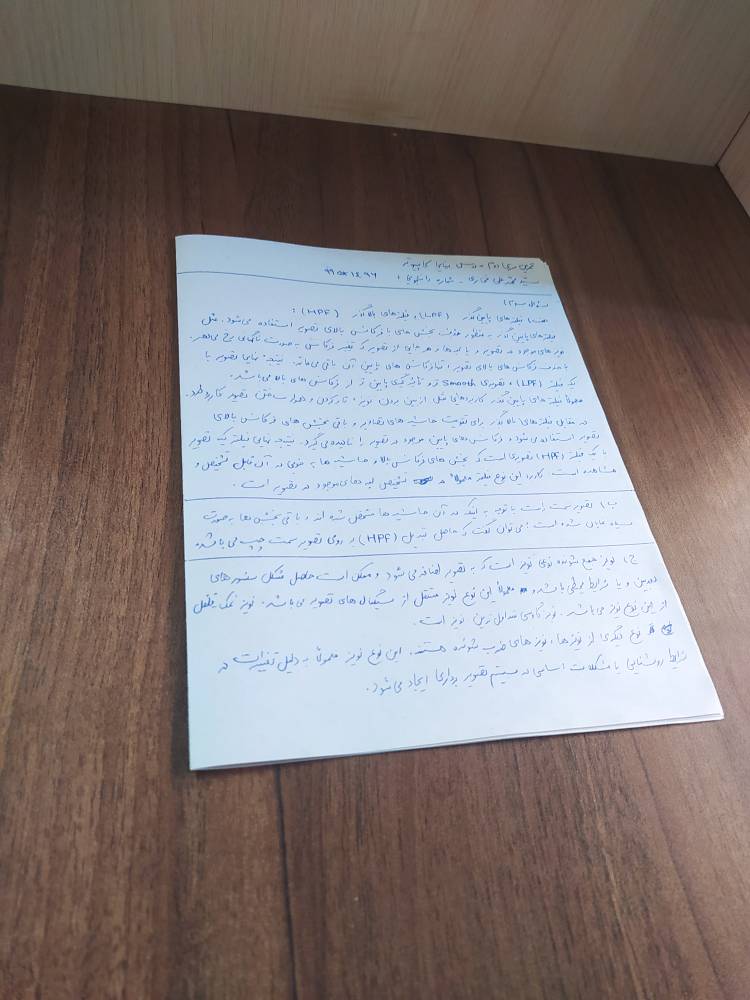 تمرین سری دوم - درس بینایی کامپیوتر
سید محمد علی فخاری - شماره دانشجویی :
سوال سوم)
الف) فیلتر های پایین گذر (LPF) و فیلتر های بالاگذر (HPF) :
فیلتر های پایین گذر به منظور حذف بخش های با فرکانس بالای تصویر استفاده می شود. مثل
نویز های موجود در تصویر و یا لبه ها و هر جایی از تصویر که تغییر فرکانس به صورت ناگهانی رخ می دهد.
با حذف فرکانس های بالای تصویر، تنها فرکانس های پایین آن باقی می ماند. نتیجه نهایی تصویر با
یک فیلتر (LPF)، تصویری smooth تر و تاثیر گیری پایین تر از فرکانس های بالا می باشد.
معمولا فیلتر های پایین گذر کاربردهای مثل از بین بردن نویز، تار کردن و هموار ساختن تصویر کاربرد دارد.
در مقابل فیلتر های بالاگذر برای تقویت حاشیه های تصاویر و باقی بخش های فرکانس بالای
تصویر استفاده می شود و فرکانس های پایین موجود در تصویر را نادیده می گیرد. نتیجه نهایی فیلتر یک تصویر
با یک فیلتر (HPF) تصویری است که بخش های فرکانس بالا و حاشیه ها به خوبی در آن قابل تشخیص و
مشاهده است. کاربرد این نوع فیلتر معمولا در تشخیص لبه های موجود در تصویر است.
ب) تصویر سمت راست با توجه به اینکه در آن حاشیه ها مشخص شده اند و باقی بخش ها به صورت
سیاه نمایان شده است، می توان گفت که حاصل تبدیل (HPF) بر روی تصویر سمت چپ می باشد
ج) نویز جمع شونده نوعی نویز است که به تصویر اضافه می شود و ممکن است حاصل مشکل سنسور های
دوربین و یا شرایط محیطی باشد و معمولا این نوع نویز مستقل از سیگنال های تصویر می باشد. نویز نمک فلفل
از این نوع نویز می باشد. نویز گاوسی متداول ترین نویز است.
نوع دیگری از نویز ها، نویز های ضرب شونده هستند. این نوع نویز معمولا به دلیل تغییرات در
شرایط روشنایی یا مشکلات اساسی در سیستم تصویر برداری ایجاد می شود.